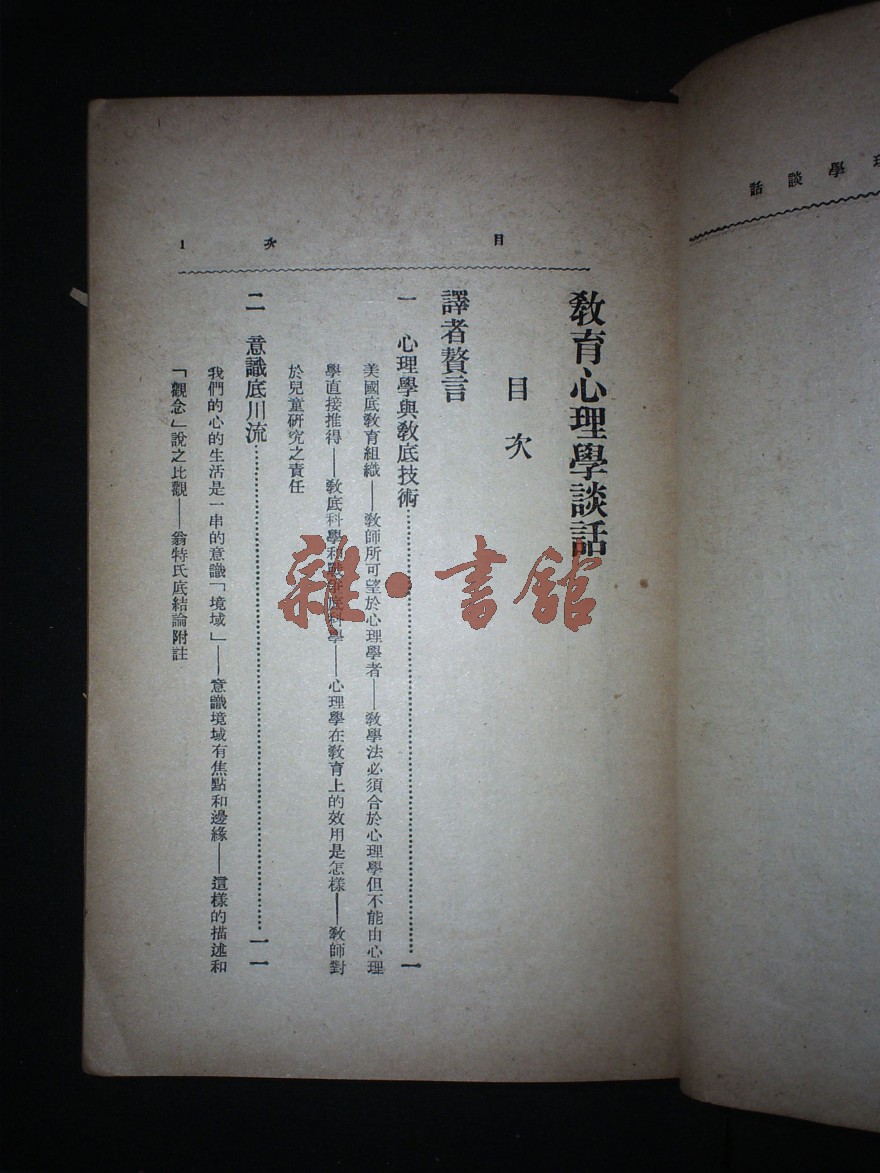 話談學理
目 次 1
教育心理學談話
目次
譯者贅言
一 心理學與教底技術…………一
美國底教育組織——教師所可望於心理學者——教學法必須合於心理學但不能由心理
學直接推得——教底科學和戰爭底科學——心理學在教育上的效用是怎樣——教師對
於兒童研究之責任
二 意識底川流…………一一
我們的心的生活是一串的意識「境域」——意識境域有焦點和邊緣——這樣的描述和
「觀念」說之比觀——翁特氏底結論附註
雜·書館